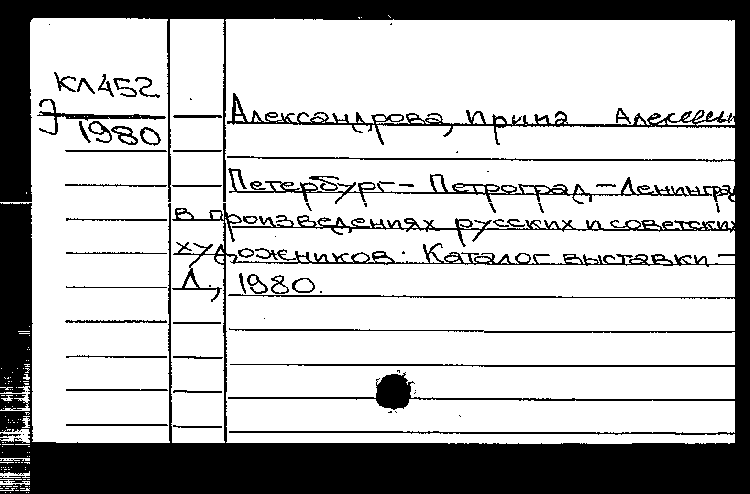 КЛ452
Э
1980
Александрова, Ирина
Петербург - Петроград, - Ленингра
в произведениях русских и советских
художников: Каталог выставки -
Л., 1980.